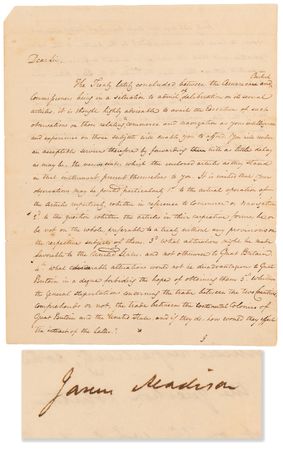 Dear Sir,
British
The Treaty lately concluded between the American and
Commissioners being in a situation to admit deliberation on its several
articles, it is thought highly advisable to avail the Executive of such
observations on those relating commerce and navigation as your intelligence
and experience on those subjects will enable you to afford. You will render
an acceptable service therefore by forwarding them with as little delay
as may be, the views under which the enclosed articles as they stand
in that instrument present themselves to you. It is wished that your
observations may be pointed particularly 1st to the actual operation of
the articles respectively, in reference to commerce or navigation
2d to the question whether the articles in their respective forms be or
be not on the whole, preferable to a treaty without any provisions on
the respective subjects of them 3d What alterations might be made
favorable to the United States and not otherwise to Great Britain.
4th what desirable alterations would not be disadvantageous to Great
Britain in a degree forbidding the hope of obtaining them 5th Whether
the general stipulations concerning the trade between the two countries
comprehends or not, the trade between the continental Colonies of
Great Britain and the United States and if they do how would they affect
the interest of the latter.
James Madison